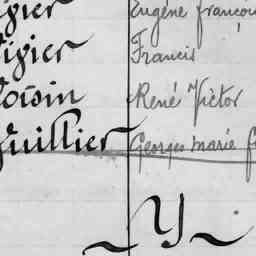 Eugène françois
Francis
Voisin René Victor
Vuillier Georges marie
Y